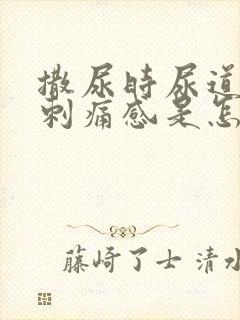 撒尿时尿道
刺痛感是怎
藤崎了士 清水